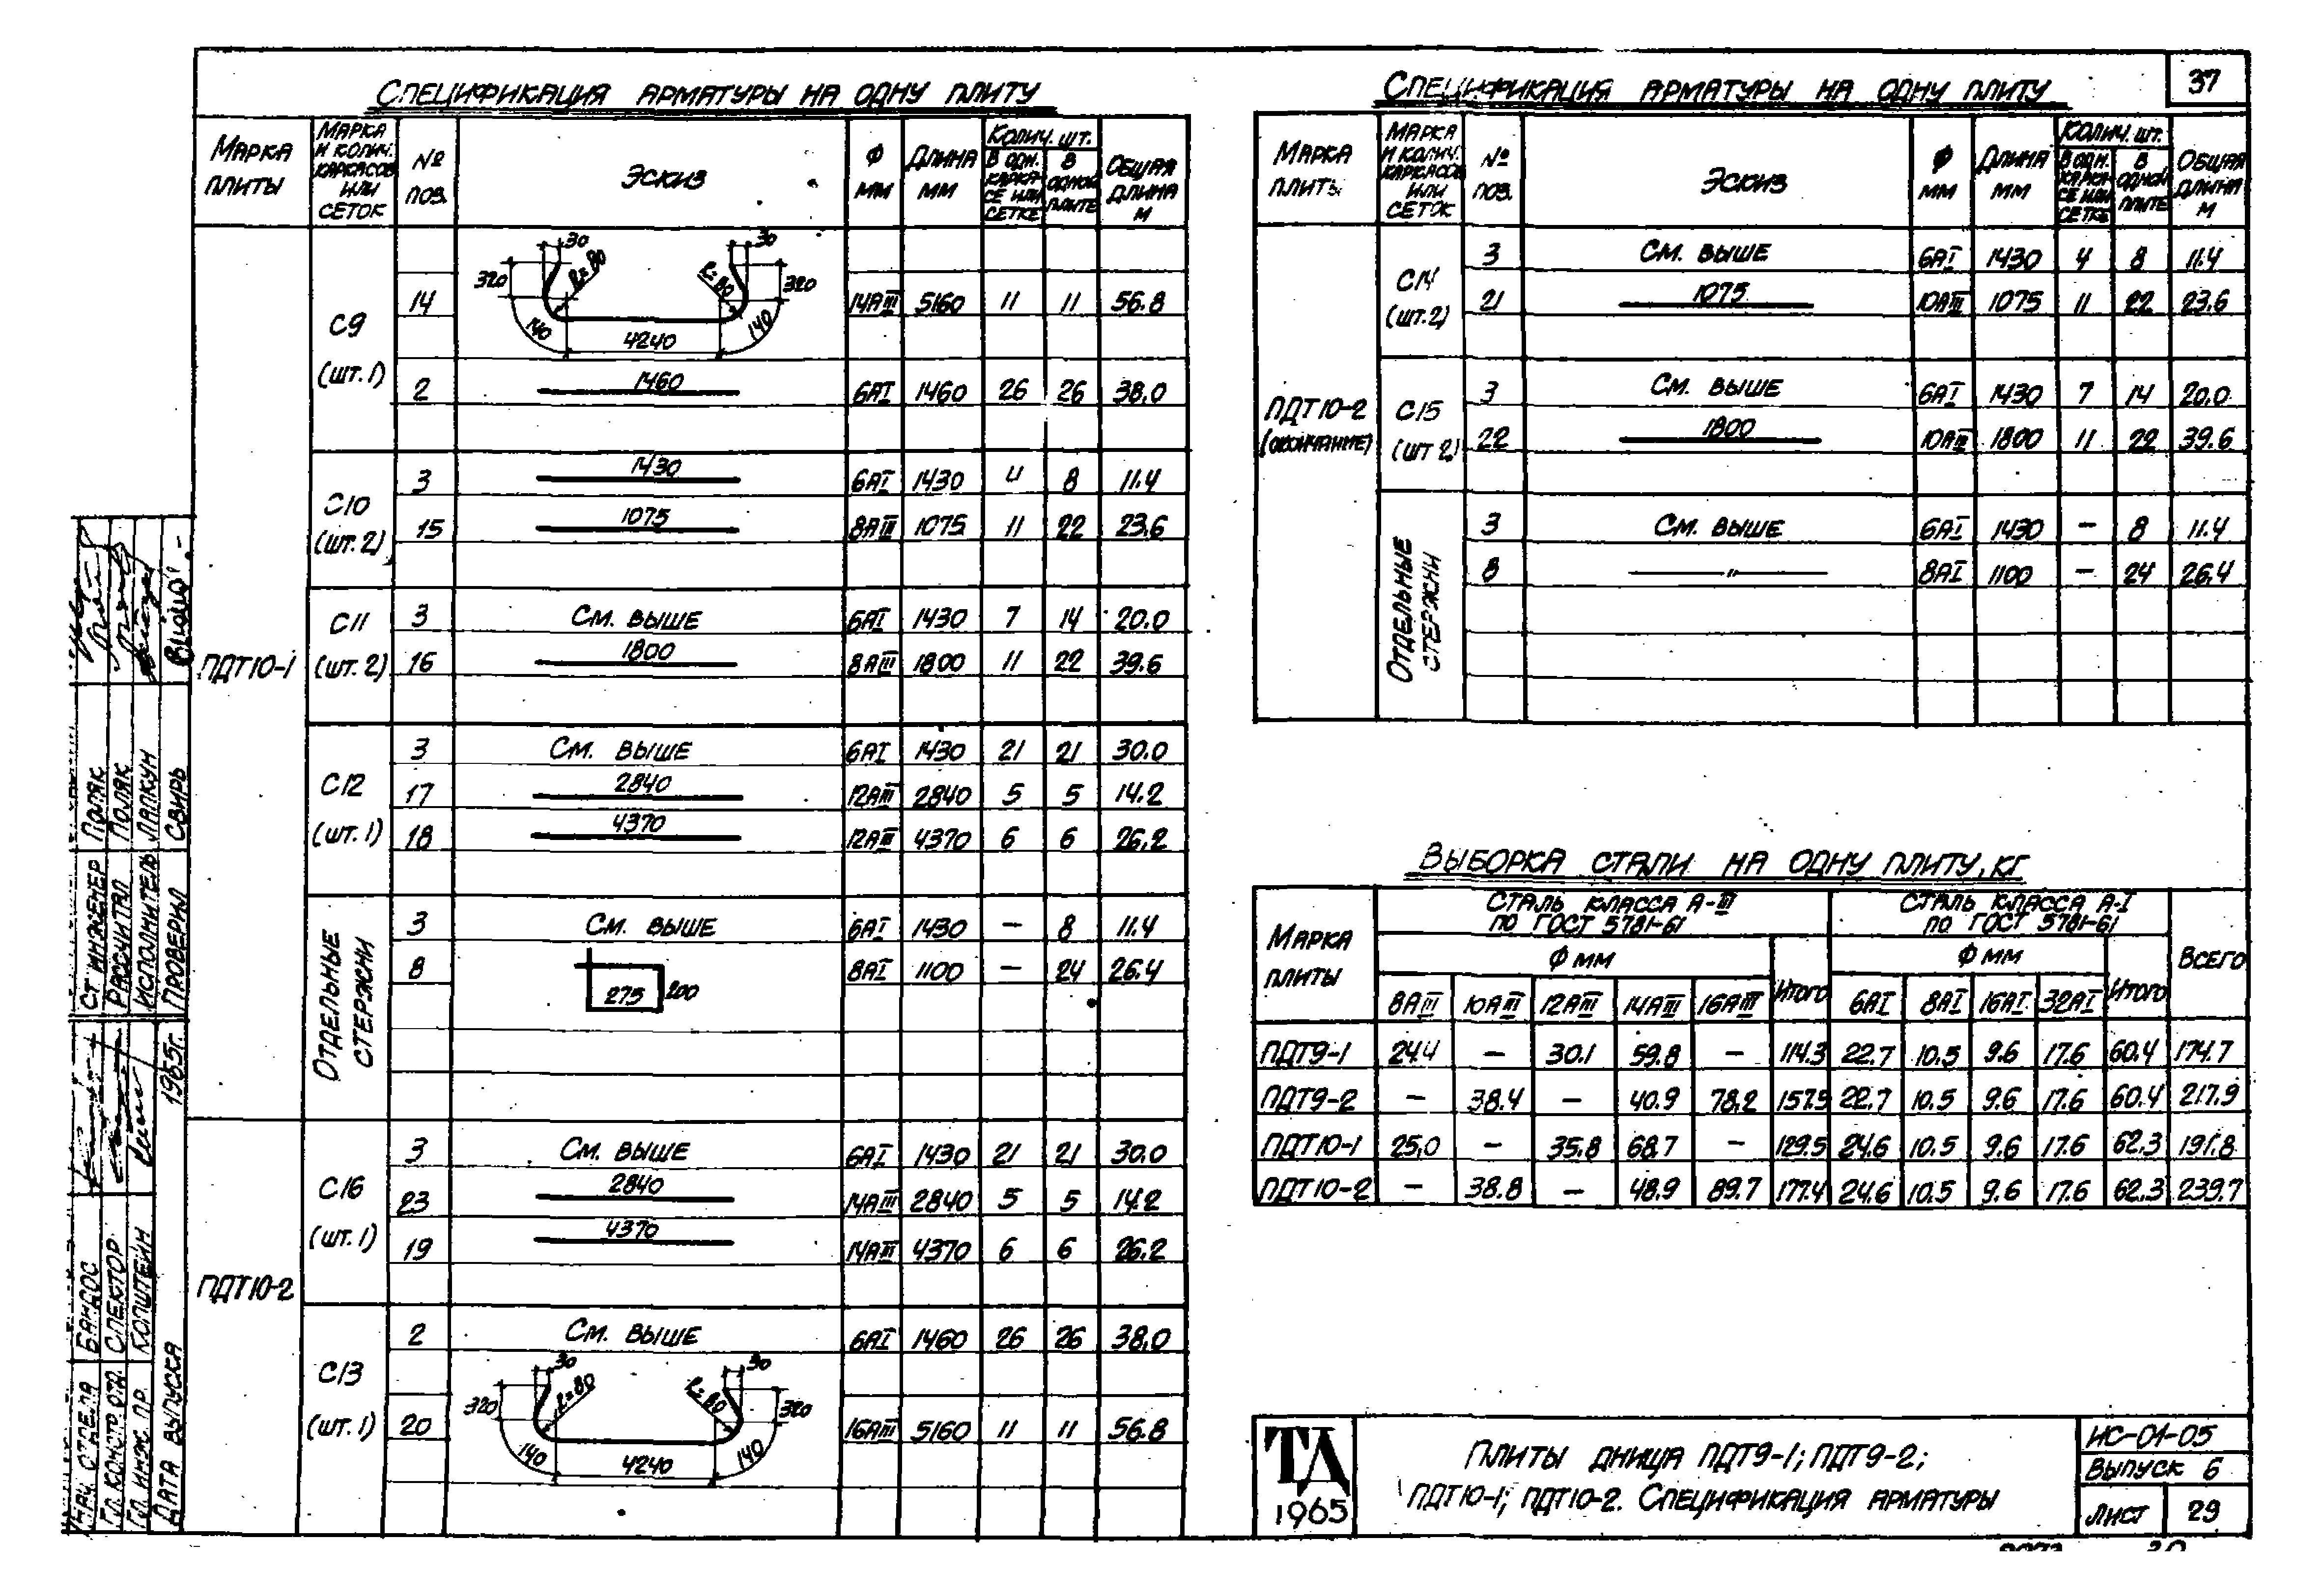 37
Спецификация арматуры на одну плиту
Марка плиты | Марка и колич. каркасов или сеток | № поз. | Эскиз | Ф мм | Длина мм | Колич. шт. | Общая длина м
В одн. каркасе или сетке | В одной плите
ПДТ10-1
С9 (шт.1)
30 30
320 R=80 R=80 320
140 4240 140
14 | 14АIII | 5160 | 11 | 11 | 56.8
2 | 1460 | 6АI | 1460 | 26 | 26 | 38.0
С10 (шт.2)
3 | 1430 | 6АI | 1430 | 4 | 8 | 11.4
15 | 1075 | 8АIII | 1075 | 11 | 22 | 23.6
С11 (шт.2)
3 | См. выше | 6АI | 1430 | 7 | 14 | 20.0
16 | 1800 | 8АIII | 1800 | 11 | 22 | 39.6
С12 (шт.1)
3 | См. выше | 6АI | 1430 | 21 | 21 | 30.0
17 | 2840 | 12АIII | 2840 | 5 | 5 | 14.2
18 | 4370 | 12АIII | 4370 | 6 | 6 | 26.2
Отдельные стержни
3 | См. выше | 6АI | 1430 | – | 8 | 11.4
8 | 275 200 | 8АI | 1100 | – | 24 | 26.4
ПДТ10-2
С16 (шт.1)
3 | См. выше | 6АI | 1430 | 21 | 21 | 30.0
23 | 2840 | 14АIII | 2840 | 5 | 5 | 14.2
19 | 4370 | 14АIII | 4370 | 6 | 6 | 26.2
С13 (шт.1)
2 | См. выше | 6АI | 1460 | 26 | 26 | 38.0
30 30
320 R=80 R=80 320
140 4240 140
20 | 16АIII | 5160 | 11 | 11 | 56.8
Спецификация арматуры на одну плиту
Марка плиты | Марка и колич. каркасов или сеток | № поз. | Эскиз | Ф мм | Длина мм | Колич. шт. | Общая длина м
В одн. каркасе или сетке | В одной плите
ПДТ10-2 (окончание)
С14 (шт.2)
3 | См. выше | 6АI | 1430 | 4 | 8 | 11.4
21 | 1075 | 10АIII | 1075 | 11 | 22 | 23.6
С15 (шт 2)
3 | См. выше | 6АI | 1430 | 7 | 14 | 20.0
22 | 1800 | 10АIII | 1800 | 11 | 22 | 39.6
Отдельные стержни
3 | См. выше | 6АI | 1430 | – | 8 | 11.4
8 | —"— | 8АI | 1100 | – | 24 | 26.4
Выборка стали на одну плиту, кг
Марка плиты | Сталь класса А-III по ГОСТ 5781-61 | Сталь класса А-I по ГОСТ 5781-61 | Всего
Ф мм | Итого | Ф мм | Итого
8АIII | 10АIII | 12АIII | 14АIII | 16АIII | 6АI | 8АI | 16АI | 32АI
ПДТ9-1 | 24.4 | – | 30.1 | 59.8 | – | 114.3 | 22.7 | 10.5 | 9.6 | 17.6 | 60.4 | 174.7
ПДТ9-2 | – | 38.4 | – | 40.9 | 78.2 | 157.5 | 22.7 | 10.5 | 9.6 | 17.6 | 60.4 | 217.9
ПДТ10-1 | 25,0 | – | 35.8 | 68.7 | – | 129.5 | 24.6 | 10.5 | 9.6 | 17.6 | 62.3 | 191.8
ПДТ10-2 | – | 38.8 | – | 48.9 | 89.7 | 177.4 | 24.6 | 10.5 | 9.6 | 17.6 | 62.3 | 239.7
ТД
1965
Плиты днища ПДТ9-1; ПДТ9-2;
ПДТ10-1; ПДТ10-2. Спецификация арматуры
ИС-01-05
Выпуск 6
Лист 29
Ст инженер Поляк
Рассчитал Поляк
Исполнитель Лапкун
Проверил Свирь
Нач. отдела Бандос
Гл. констр. отд. Спектор
Гл. инж. пр. Копштейн
Дата выпуска 1965г.